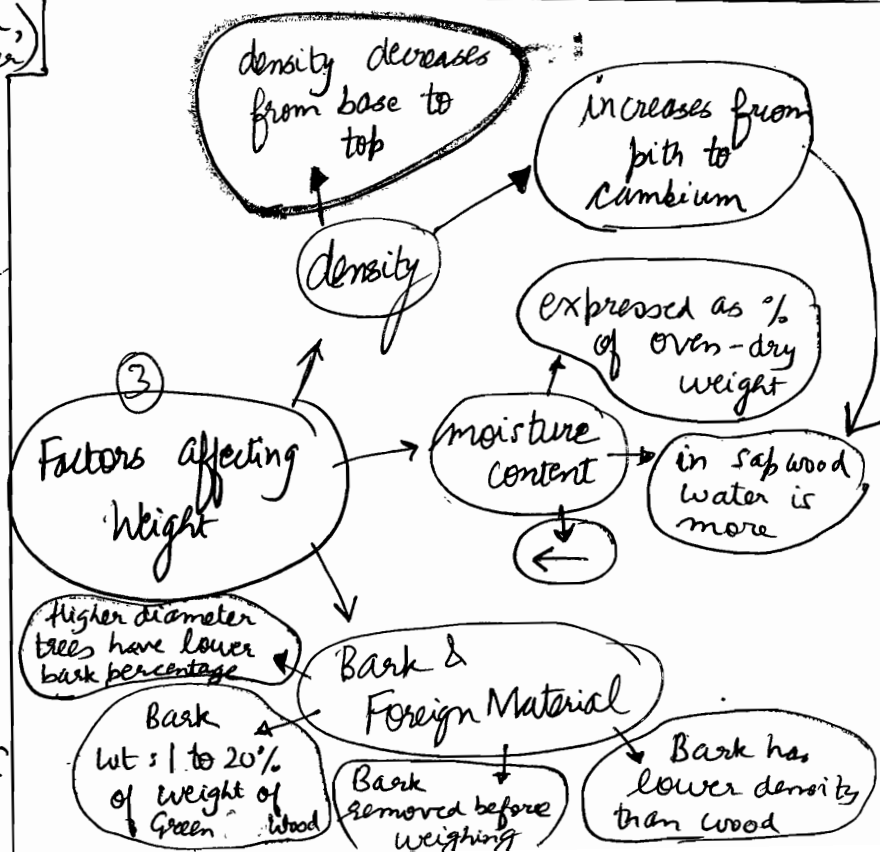 density decreases
from base to
top
increases from
pith to
cambium
density
expressed as %
of oven-dry
weight
3
Factors affecting
Weight
moisture
content
in sapwood
water is
more
Higher diameter
trees have lower
bark percentage
Bark &
Foreign Material
Bark
wt : 1 to 20%
of weight of
Green Wood
Bark
removed before
weighing
Bark has
lower density
than wood